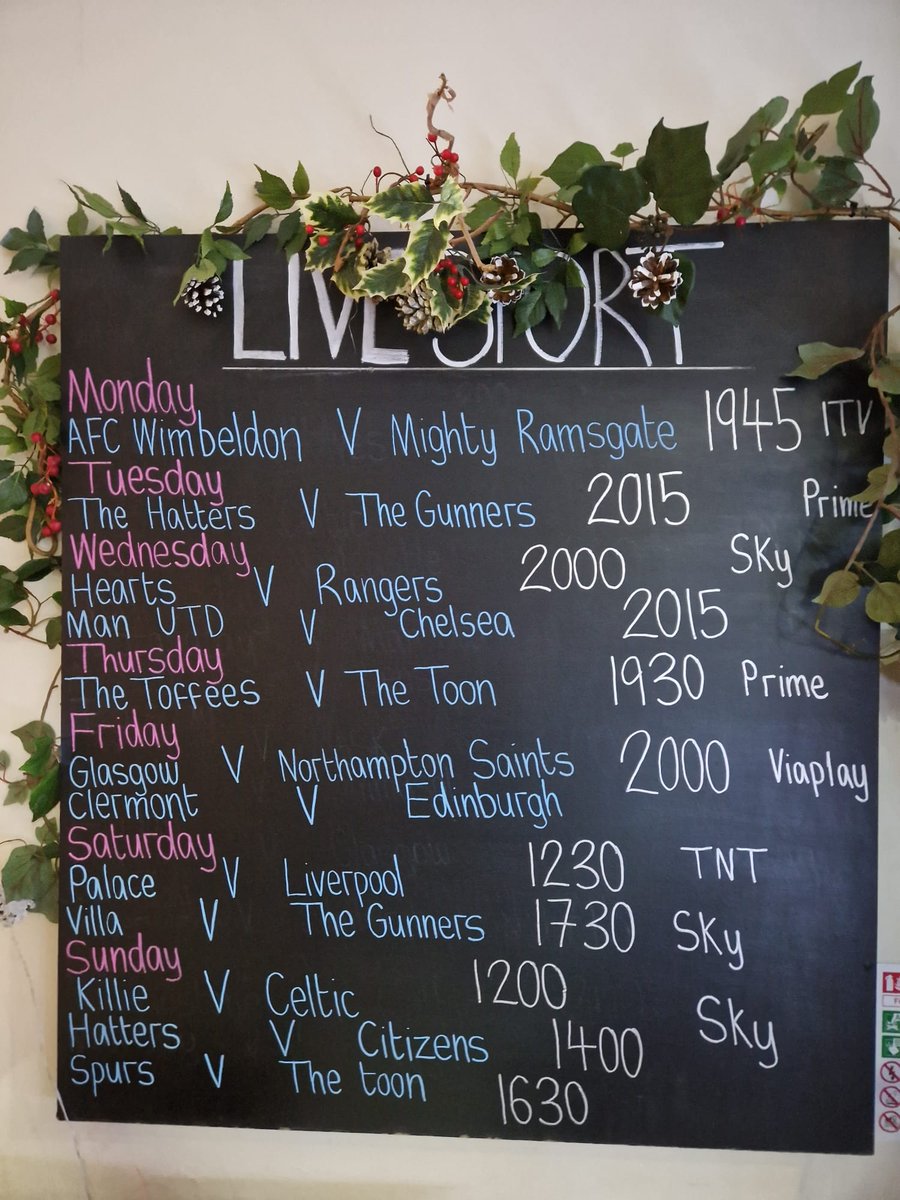 LIVE SPORT
Monday
AFC Wimbeldon V Mighty Ramsgate 1945 ITV
Tuesday
The Hatters V The Gunners 2015 Prime
Wednesday
Hearts V Rangers 2000 Sky
Man UTD V Chelsea 2015
Thursday
The Toffees V The Toon 1930 Prime
Friday
Glasgow V Northampton Saints 2000 Viaplay
Clermont V Edinburgh
Saturday
Palace V Liverpool 1230 TNT
Villa V The Gunners 1730 Sky
Sunday
Killie V Celtic 1200
Hatters V Citizens 1400 Sky
Spurs V The toon 1630